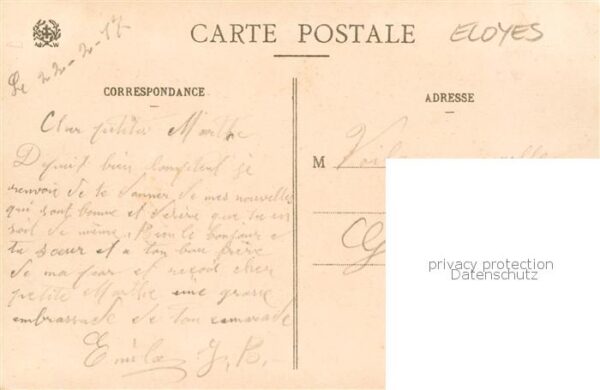 CARTE POSTALE
ELOYES
Le 22-2-17
CORRESPONDANCE
ADRESSE
Cher petite Marthe
Depuit bien longtent je
renvoie de te donner de mes nouvelles
qui sont bonne et désire que tu en
soit de même. Bien le bonjour a
ta sœur et a ton bon frère
de ma par et reçoit cher
petite Marthe une grosse
embrassade de ton camarade
J. B.
M
privacy protection
Datenschutz